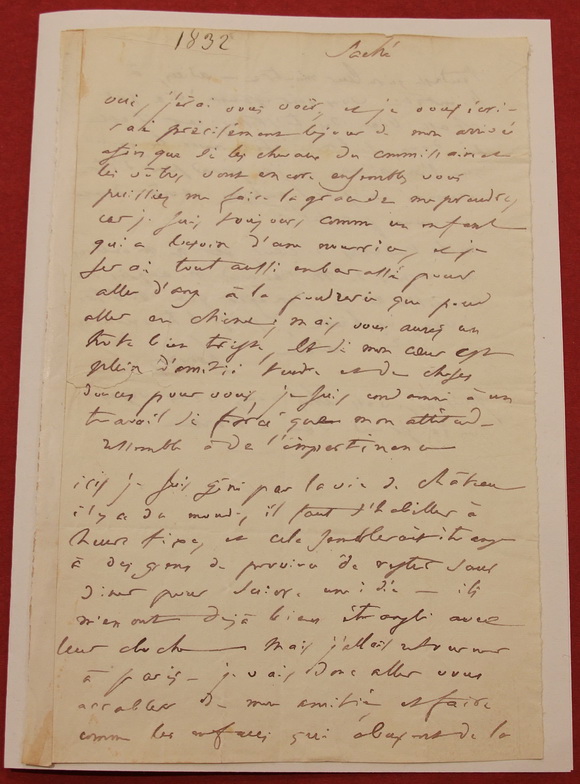 1832 Saché
oui, j'irai vous voir, et je vous écri-
rai précisément le jour de mon arrivée
afin que si les chevaux du commissaire et
les vôtres vont encore ensemble vous
puissiez me faire la grandeur me prendre,
car je suis toujours comme un enfant
qui a besoin d'une nourrice, et je
serai tout aussi embarrassé pour
aller d'ang à la poudrerie que pour
aller en chine; mais vous aurez un
hôte bien triste, et si mon cœur est
plein d'amitié tendre et de choses
douces pour vous, je suis condamné à un
travail si forcé que mon attitude
ressemble à de l'impertinence
ici je suis gêné par la vie de château
il y a du monde, il faut s'habiller à
heure fixe, et cela semblerait étrange
à des gens de province de rester sans
diner pour suivre une idée — ils
m'en ont déjà bien étranglé avec
leur cloche — Mais j'allais retourner
à paris — je vais donc aller vous
accabler de mon amitié et faire
comme les enfans qui abusent de la